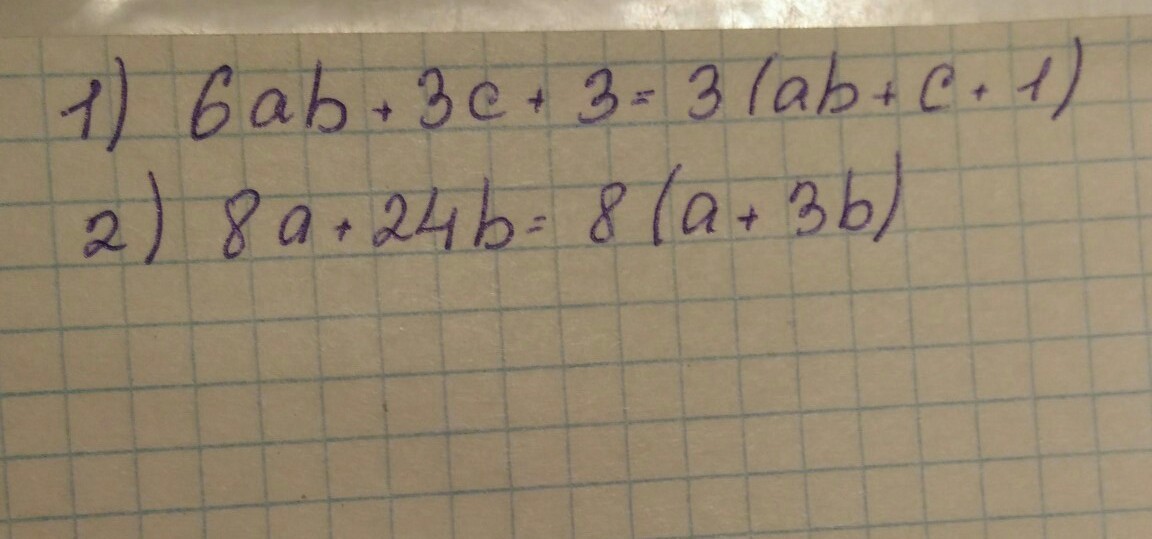 1) 6ab + 3c + 3 = 3 (ab + c + 1)
2) 8a + 24b = 8 (a + 3b)